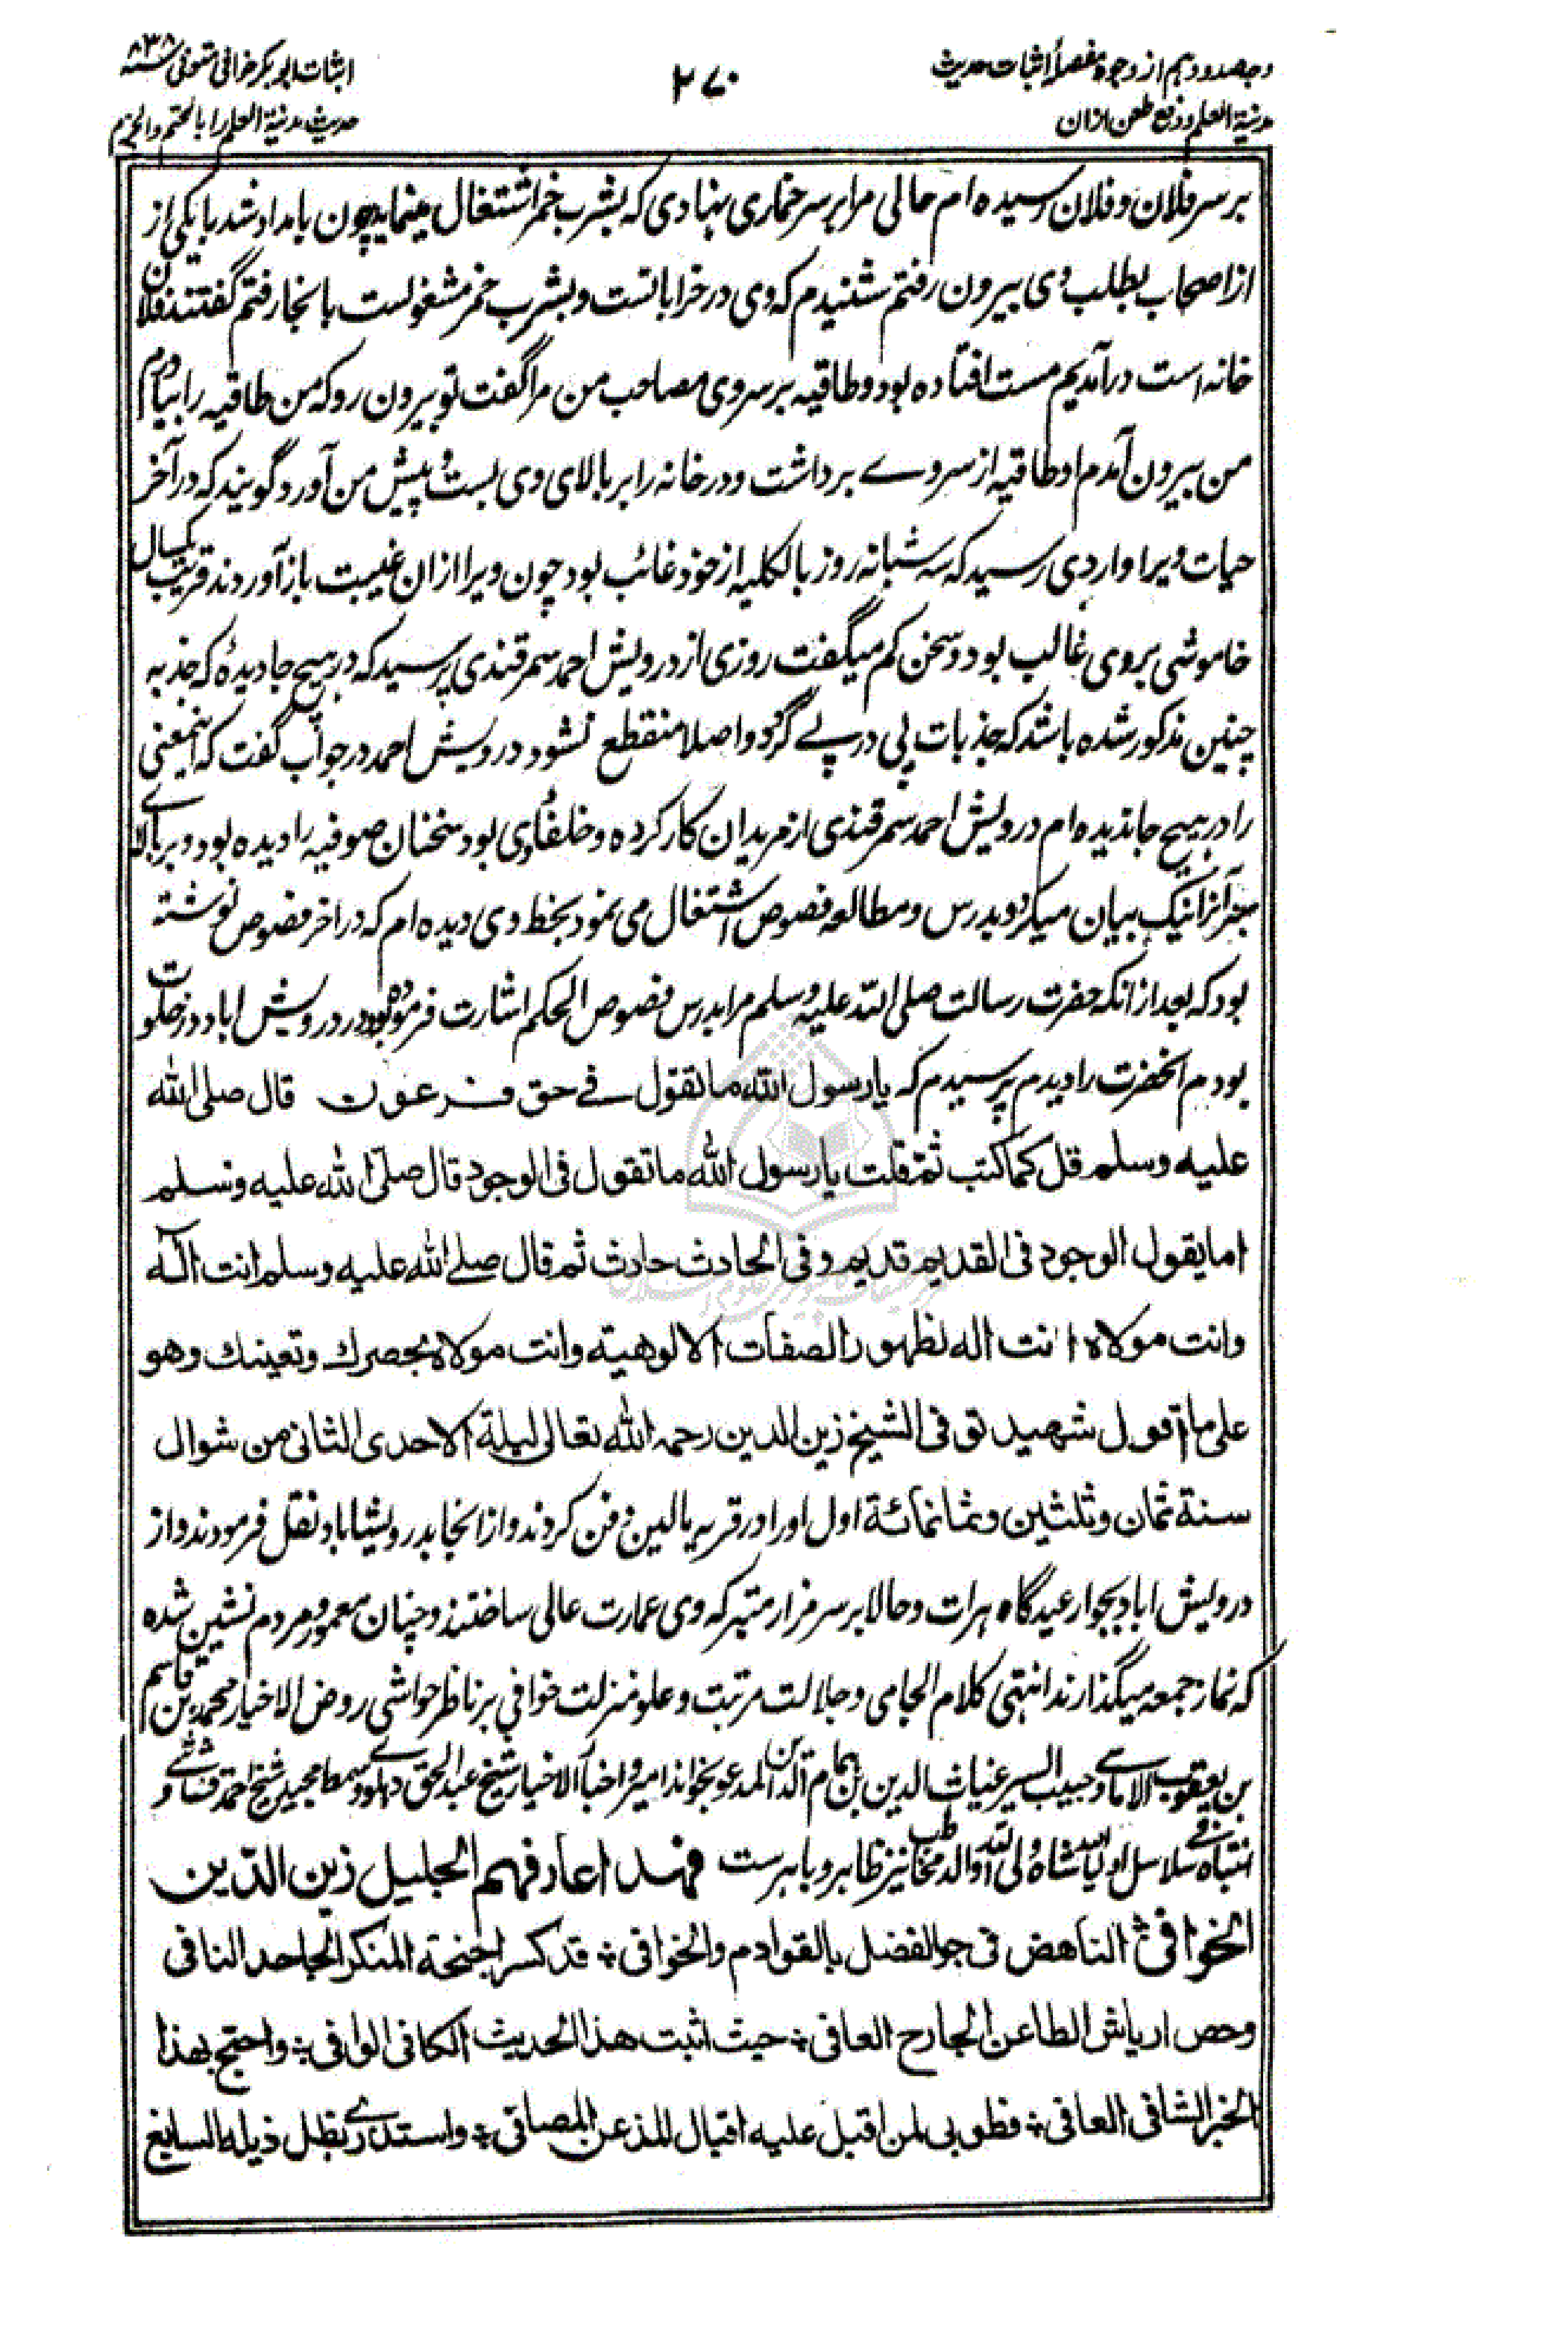 وجه صد و دهم از وجوه مفصلهٔ اثبات حدیث
مدینة العلم و دفع طعن ازان
۲۷۰
اثبات ابو بکر خوافی متوفی سنه ۸۳۸
حدیث مدینة العلم را بالحتم والجزم
بر سر فلان و فلان رسیده ام حالی مرا بر سر خماری بنهادی که بشرب خمر اشتغال مینماید چون بامداد شد با یکی از
از اصحاب بطلب وی بیرون رفتم شنیدم که وی در خراباتست و بشرب خمر مشغولست بانجا رفتم گفتند فلان
خانه است درآمدیم مست افتاده بود و طاقیه بر سر وی مصاحب من مرا گفت تو بیرون رو که من طاقیه را بیارم
من بیرون آمدم او طاقیه از سر وے برداشت و در خانه را بر بالای وی بست و پیش من آورد گویند که در آخر
حیات ویرا واردی رسید که سه شبانه روز بالکلیه از خود غائب بود چون ویرا ازان غیبت باز آوردند قریب یکسال
خاموشی بر وی غالب بود و سخن کم میگفت روزی از درویش احمد سمرقندی پرسید که در هیچ جا دیدهٔ که جذبه
چنین مذکور شده باشد که جذبات پی در پے گردد و اصلا منقطع نشود درویش احمد در جواب گفت که اینمعنی
را در هیچ جا ندیده ام درویش احمد سمرقندی از مریدان کار کرده و خلفاء وی بود سخنان صوفیه را دیده بود و بر بالاے
منبر آنرا نیک بیان میکرد و بدرس و مطالعه فصوص اشتغال می نمود بخط وی دیده ام که در اخر فصوص نوشته
بود که بعد از انکه حضرت رسالت صلی الله علیه وسلم مرا بدرس فصوص الحکم اشارت فرموده بود در درویش اباد در خلوت
بودم انحضرت را دیدم پرسیدم که یا رسول الله ما تقول فے حق فرعون قال صلی الله
علیه وسلم قل کما کتب ثم قلت یا رسول الله ما تقول فی الوجود قال صلی الله علیه وسلم
اما یقول الوجود فی القدیم قدیم و فی الحادث حادث ثم قال صلے الله علیه وسلم انت اله
وانت مولاه انت اله لظهور الصفات الالوهیة وانت مولاه بحصرك وتعینك وهو
علی ما اقول شهید توفی الشیخ زین الدین رحمه الله تعالی لیلة الاحدی الثانی من شوال
سنة ثمان وثلثین وثمانمائة اول او را در قریه مالین دفن کردند و از انجا بدرویشاباد نقل فرمودند و از
درویش اباد بجوار عیدگاه هرات و حالا بر سر مزار متبرکه وی عمارت عالی ساختند و چنان معمور و مردم نشین شده
که نماز جمعه میگذارند انتهی کلام الجامی و جلالت مرتبت و علو منزلت خوافی بر ناظر حواشی روض الاخیار محمد بن قاسم
بن یعقوب الاماسی و حبیب السیر غیاث الدین بن همام الدین المدعو بخواند امیر و اخبار الاخیار شیخ عبد الحق دهلوے و سمط مجید شیخ احمد قشاشے و
انتباه فے سلاسل اولیاء الله شاه ولی الله والد مخاطب نیز ظاهر و باهرست فهذا عاد فهم الجلیل زین الدین
الخوافی الناهض فی جو الفضل بالقوادم والخوافی قد کسر اجنحة المنکر الجاحد النافی
وحص اریاش الطاعن الجارح العافی حیث اثبت هذا الحدیث الکافی الوافی واحتج بهذا
الخبر الشافی العافی فطوبی لمن اقبل علیه اقبال المذعن المصافی واستذری بظل ذیله السابغ